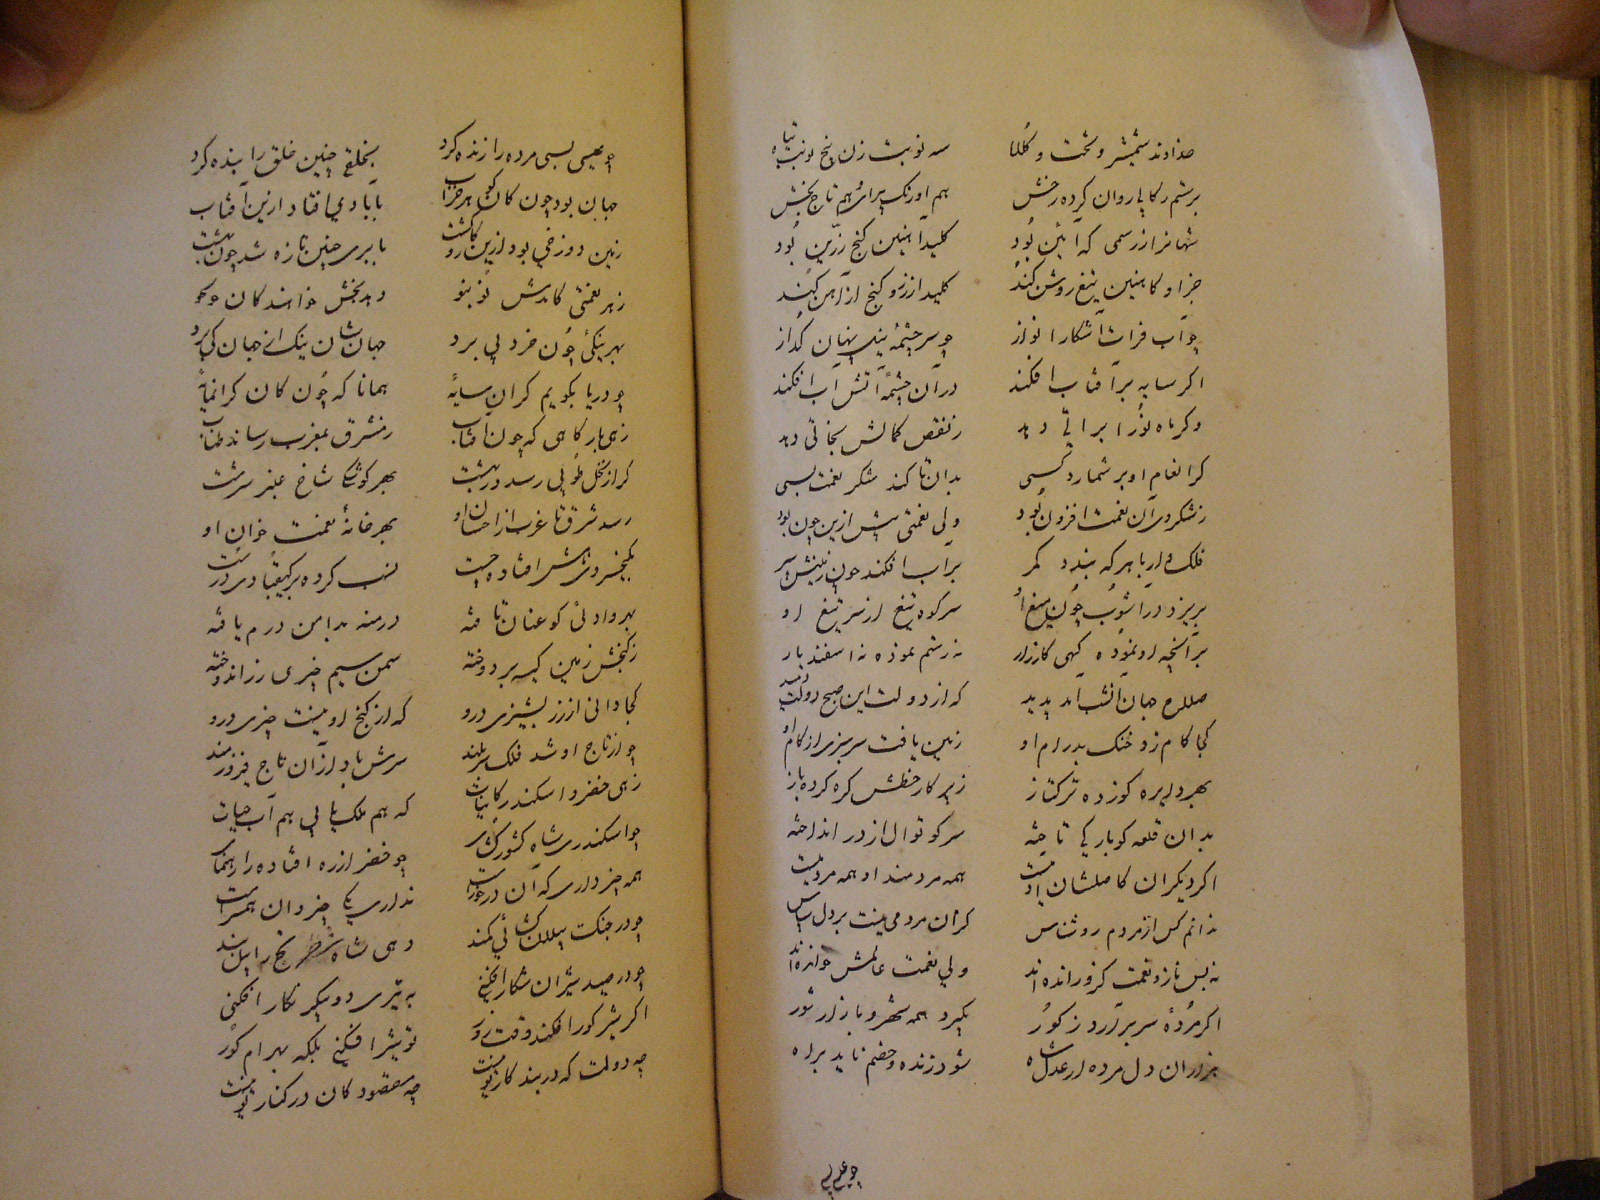 خداوند شمشیر و تخت و کلاه سه نوبت زن پنج نوبت پناه
برستم رکابی روان کرده رخش هم اورنک پیرای هم تاج بخش
شهانرا ز رسمی که آئین بود کلید آهنین کنج زرین بود
جز او کاهنین تیغ روشن کند کلید از زر و کنج از آهن کند
چو آب فرات آشکارا نواز چو سرچشمه نیل پنهان کداز
اکر سایه بر آفتاب افکند در آن چشمه آتش آب افکند
وکر ماه نو را براتی دهد ز نقص کمالش نجاتی دهد
کر انعام او بر شمارد کسی بدان تا کند شکر نعمت بسی
ز شکر وی آن نعمت افزون بود ولی نعمتی بیش ازین چون بود
فلک وار با هر که بندد کمر بر آب افکند چون زمینش سپر
بریزد در آشوب چون میغ او سر کوه تیغ از سر تیغ او
بر آنچه او نموده کهی کارزار نه رستم نموده نه اسفندیار
صلاح جهان آنشب آمد پدید که از دولت این صبح دولت دمید
کجا کام زد خنک پدرام او زمین یافت سرسبزی از کام او
بهر دایره کو زده ترکتاز ز پرکار خطش کره کرده باز
بدان قلعه کو بارکی تاخته سر کوتوال از در انداخته
اکر دیکران کاصلشان آدمیست همه مردمند او همه مردمیست
ندانم کس از مردم روشناس کزان مردمی نیست بر دل سپاس
نه بس ناز و نعمت کزو رانده اند ولی نعمت عالمش خوانده اند
اکر مرده سر برآرد ز کور بکیرد همه شهر و بازار شور
هزاران دل مرده از عدل شاه شود زنده و خصم ناید براه
چو عیسی
چو عیسی بسی مرده را زنده کرد بخلقی چنین خلق را بنده کرد
جهان بود چون کان کوهر خراب بآبادی افتاد ازین آفتاب
زمین دوزخی بود ازین کار و کشت بابری چنین تازه شد چون بهشت
ز هر نعمتی کایدش نو بنو دهد بخش خواهندکان جو جو
بهر نیکئی چون خرد پی برد جهانش ان نیک از جهان کی برد
چو دریا بکویم کران سایهٔ همانا که چون کان کرانمایهٔ
زهی بارکاهی که چون آفتاب ز مشرق بمغرب رساند طناب
کر از نخل طوبی رسد در بهشت بهر کوشکی شاخ عنبر سرشت
رسد شرق تا غرب از احسان او بهر خانهٔ نعمت خوان او
بکیخسروی نامش افتاده چست نسب کرده بر کیقبادی درست
بهر وادئی کو عنان تافته درمنه بدامن درم یافته
ز کنجش زمین کیسه بر دوخته سمن سیم خیری زر اندوخته
کجا دانی از زر پشیزی درو که از کنج او نیست چیزی درو
چو از تاج او شد فلک سربلند سرش باد ازان تاج فیروزمند
زهی خضر و اسکندر کاینات که هم ملک یابی هم آب حیات
چو اسکندری شاه کشورکشای چو خضر از ره افتاده را رهنمای
همه چیز داری که آن درخورست نداری یکی چیز و آن همسرست
چو در جنک پیلان کشائی کمند دهی شاه شطرنج را پیل بند
چو در صید شیران شکار افکنی به تیری دو پیکر نکار افکنی
اکر شیر کور افکند وقت زور تو شیر افکنی بلکه بهرام کور
چه دولت که در بند کار تو نیست چه مقصود کان در کنار تو نیست